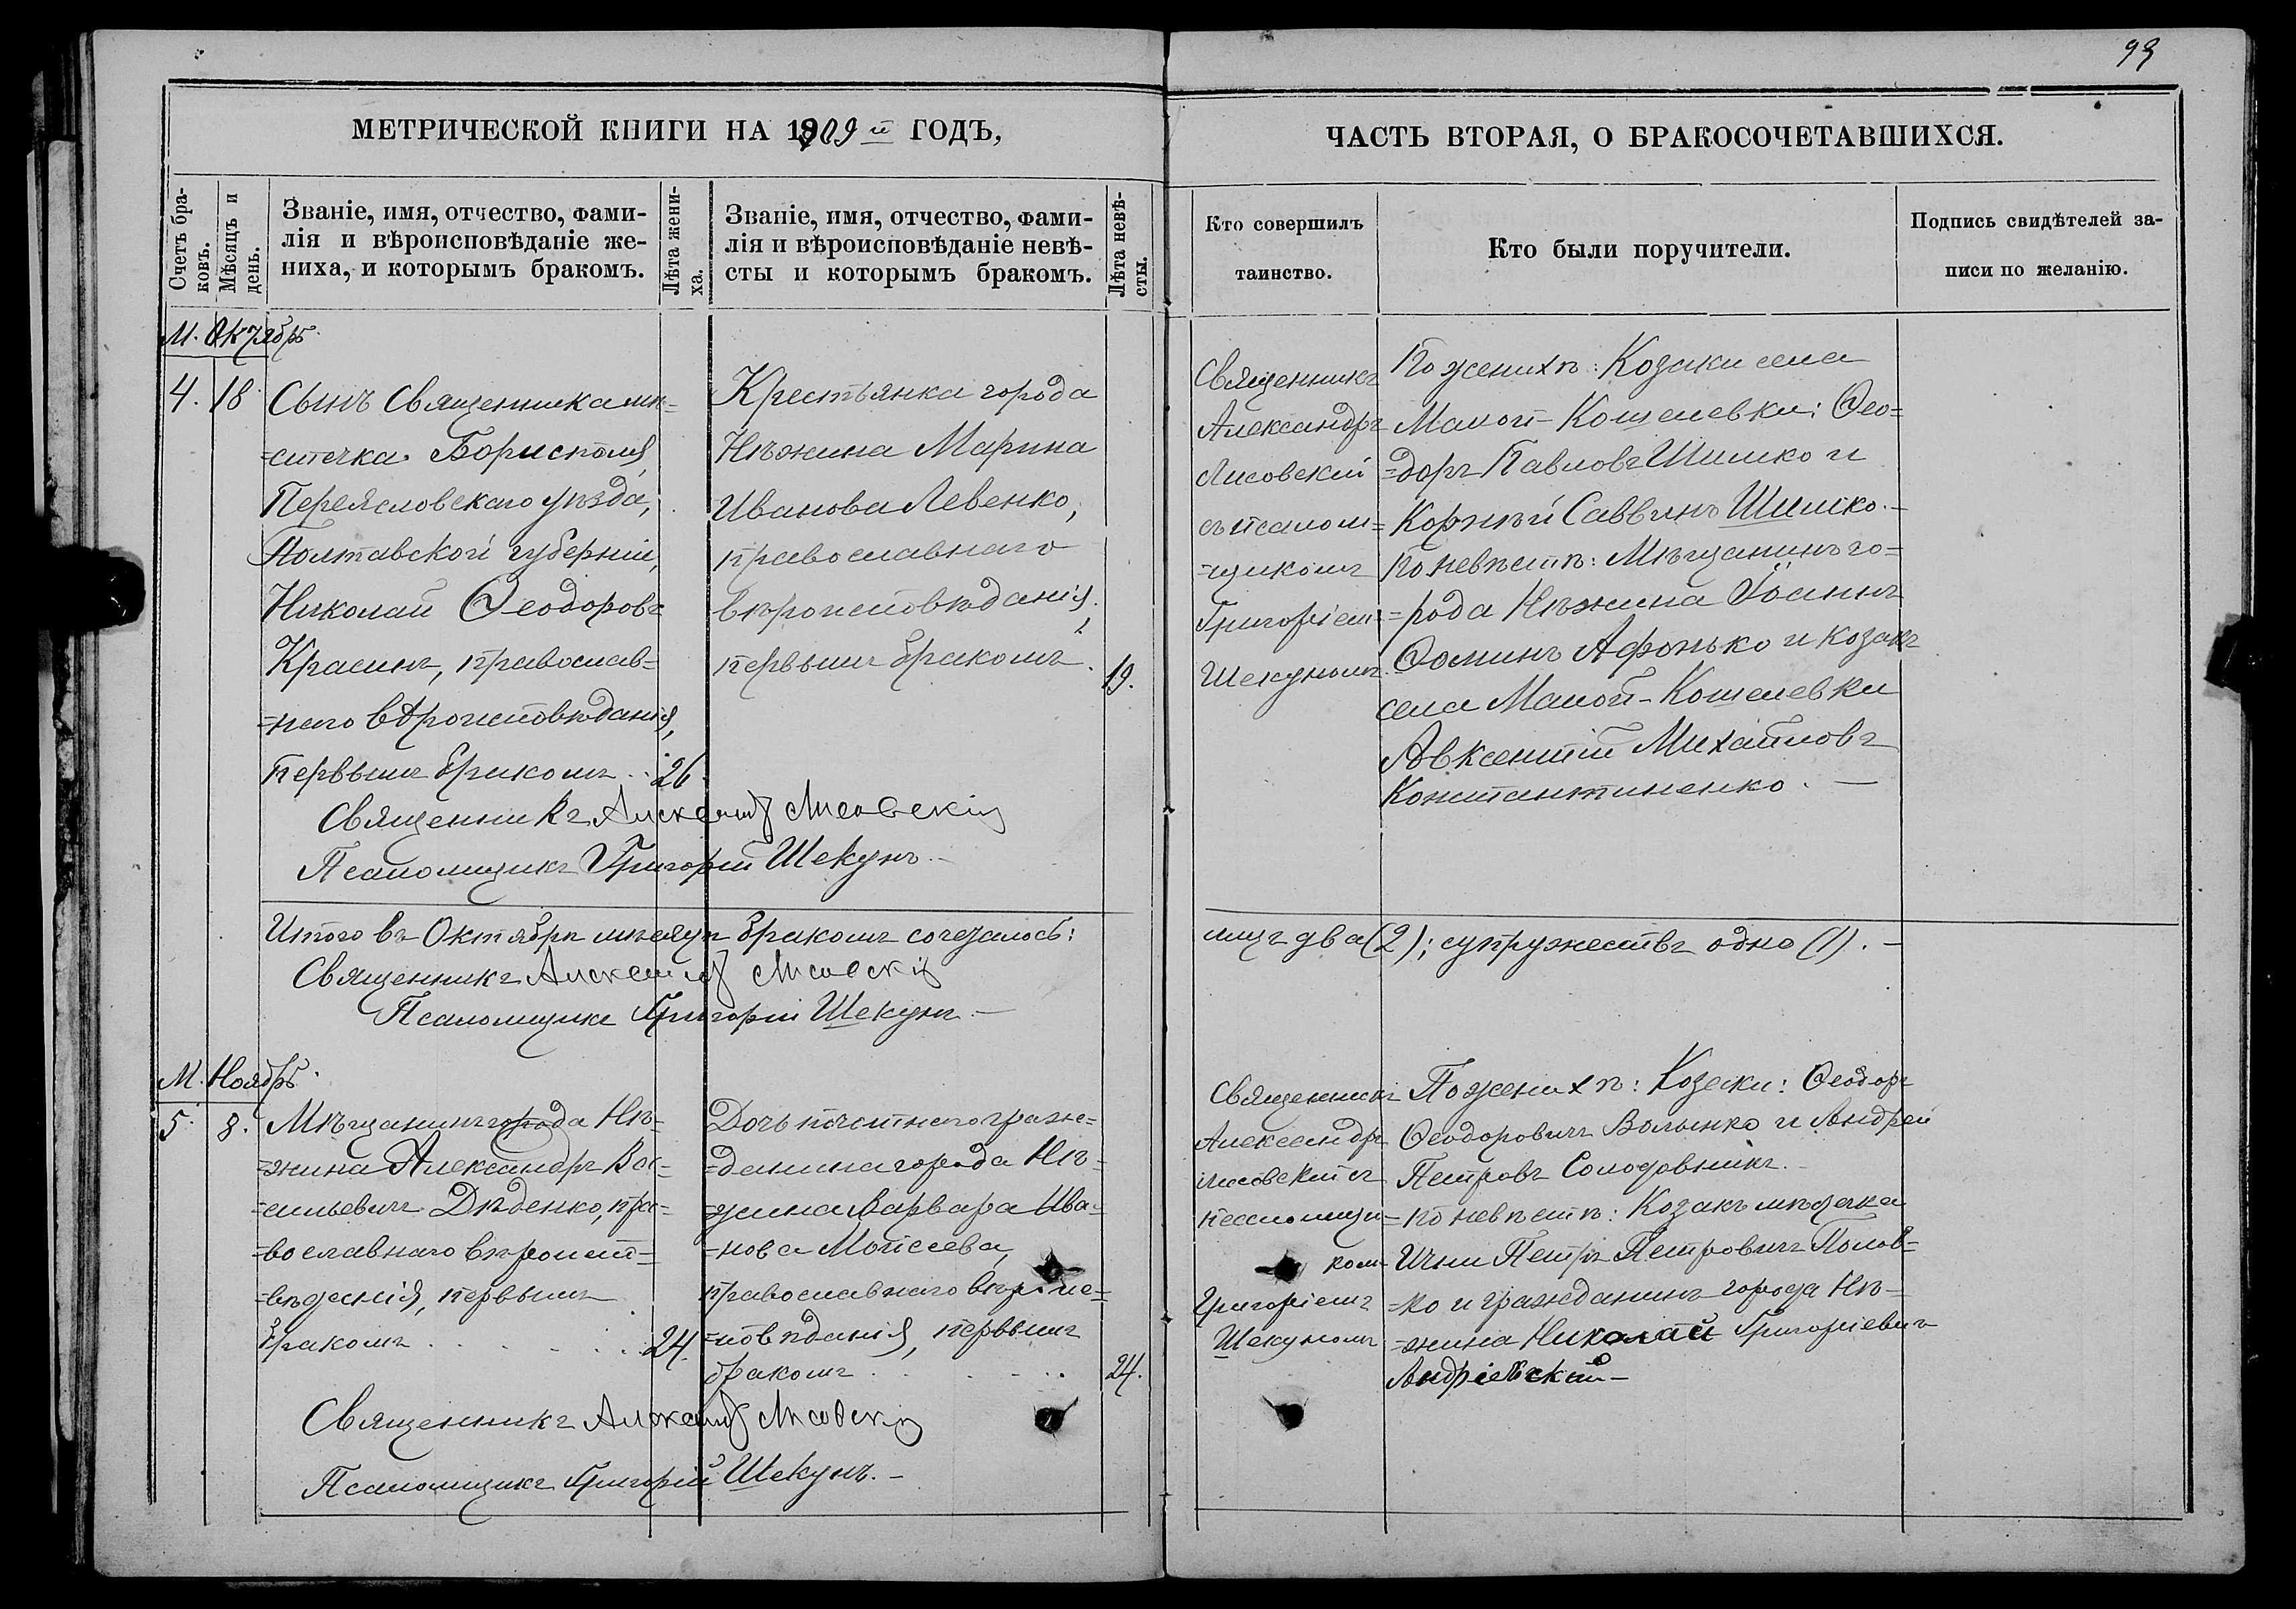 99
МЕТРИЧЕСКОЙ КНИГИ НА 1909 й ГОДЪ,
ЧАСТЬ ВТОРАЯ, О БРАКОСОЧЕТАВШИХСЯ.
Счетъ бра-
ковъ.
Мѣсяцъ и
день.
Званіе, имя, отчество, фами-
лія и вѣроисповѣданіе же-
ниха, и которымъ бракомъ.
Лѣта жени-
ха.
Званіе, имя, отчество, фами-
лія и вѣроисповѣданіе невѣ-
сты и которымъ бракомъ.
Лѣта невѣ-
сты.
Кто совершилъ
таинство.
Кто были поручители.
Подпись свидѣтелей за-
писи по желанію.
М. Октябрь.
4. 18
Сынъ Священника мѣ=
=стечка Борисполя,
Переясловскаго уѣзда,
Полтавской губерніи,
Николай Ѳеодоровъ
Красинъ, православ=
=наго вѣроисповѣданія,
первымъ бракомъ .. 26.
Крестьянка города
Нѣжина Марина
Иванова Левенко,
православнаго
вѣроисповѣданія,
первымъ бракомъ. 19.
Священникъ
Александръ
Лисовскій
съ псалом=
=щикомъ
Григоріем
Шекуномъ.
По женихѣ: Козаки села
Малой-Кошелевки: Ѳео=
=доръ Павловъ Шишко и
Корнѣй Саввинъ Шишко.-
По невѣстѣ: Мѣщанинъ го=
=рода Нѣжина Іоаннъ
Ѳоминъ Афонько и козакъ
села Малой-Кошелевки
Авксентій Михайловъ
Константиненко. —
Священникъ Александръ Лисовскій
Псаломщикъ Григорій Шекунъ.-
Итого въ Октябрѣ мѣсяцѣ бракомъ сочеталось:
лицъ два (2); супружествъ одно (1). -
Священникъ Александръ Лисовскій
Псаломщикъ Григорій Шекунъ. —
М. Ноябрь.
5. 8.
Мѣщанинъ города Нѣ=
=жина Александръ Ва=
=сильевичъ Дѣденко, пра=
=вославнаго вѣроиспо=
=вѣданія, первымъ
бракомъ . . . . . . 24.
Дочь почетнаго граж=
=данина города Нѣ=
=жина Варвара Ива=
=нова Моисеева,
православнаго вѣроис=
=повѣданія, первымъ
бракомъ . . . . . 24.
Священникъ
Александръ
Лисовскій съ
псаломщи=
комъ
Григоріемъ
Шекуномъ
По женихѣ: Козаки: Ѳеодоръ
Ѳеодоровичъ Волынко и Андрей
Петровъ Солодовникъ.-
по невѣстѣ: Козакъ мѣстечка
Ични Петръ Петровичъ Попов=
=ко и гражданинъ города Нѣ=
=жина Николай Григоріевичъ
Андріевскій-
Священникъ Александръ Лисовскій
Псаломщикъ Григорій Шекунъ. -